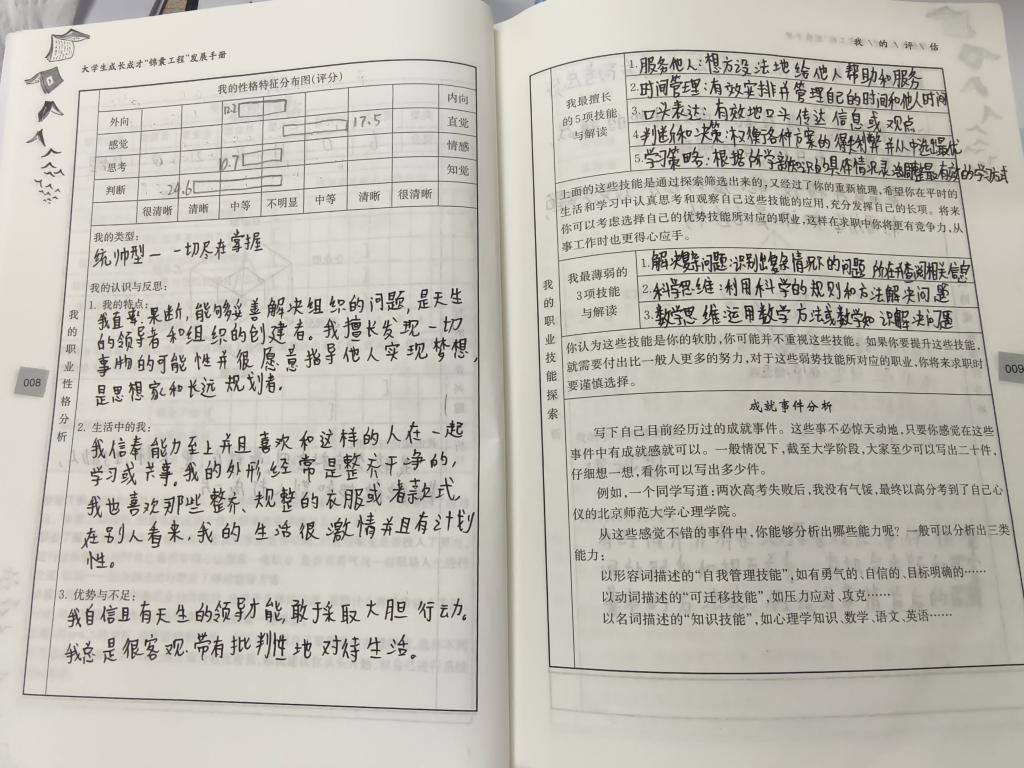 大学生成长成才“锦囊工程”发展手册
我的性格特征分布图(评分)
外向 12.2 内向
感觉 17.5 直觉
思考 10.7 情感
判断 24.6 知觉
很清晰 清晰 中等 不明显 中等 清晰 很清晰
我的职业性格分析
我的类型:
统帅型— 一切尽在掌握
我的认识与反思:
1. 我的特点:
我直率、果断,能够妥善解决组织的问题,是天生
的领导者和组织的创建者。我擅长发现一切
事物的可能性并很愿意指导他人实现梦想,
是思想家和长远规划者。
2. 生活中的我:
我信奉能力至上并且喜欢和这样的人在一起
学习或共事。我的外形经常是整齐干净的,
我也喜欢那些整齐、规整的衣服或者款式,
在别人看来,我的生活很激情并且有计划
性。
3. 优势与不足:
我自信且有天生的领导才能,敢于采取大胆行动。
我总是很客观、带有批判性地对待生活。
008
我 \ 的 \ 评 \ 估
我的职业技能探索
我最擅长
的5项技能
与解读
1.服务他人:想方设法地给他人帮助和服务
2.时间管理:有效安排并管理自己的时间和他人时间
3.口头表达:有效地口头传达信息或观点
4.判断和决策:权衡各种方案的得利弊并从中选出最优
5.学习策略:根据所学新知识的具体情况灵活调整最有效的学习方式
上面的这些技能是通过探索筛选出来的,又经过了你的重新梳理,希望你在平时的
生活和学习中认真思考和观察自己这些技能的应用,充分发挥自己的长项。将来
你可以考虑选择自己的优势技能所对应的职业,这样在求职中你将更有竞争力,从
事工作时也更得心应手。
我最薄弱的
3项技能
与解读
1.解决复杂问题:识别出复杂情况下的问题 并查阅相关信息
2.科学思维:利用科学的规则和方法解决问题
3.数学思维:运用数学方法或数学知识解决问题
你认为这些技能是你的软肋,你可能并不重视这些技能。如果你要提升这些技能,
就需要付出比一般人更多的努力,对于这些弱势技能所对应的职业,你将来求职时
要谨慎选择。
成就事件分析
写下自己目前经历过的成就事件。这些事不必惊天动地,只要你感觉在这些
事件中有成就感就可以。一般情况下,截至大学阶段,大家至少可以写出二十件,
仔细想一想,看你可以写出多少件。
例如,一个同学写道:两次高考失败后,我没有气馁,最终以高分考到了自己心
仪的北京师范大学心理学院。
从这些感觉不错的事件中,你能够分析出哪些能力呢?一般可以分析出三类
能力:
以形容词描述的“自我管理技能”,如有勇气的、自信的、目标明确的……
以动词描述的“可迁移技能”,如压力应对、攻克……
以名词描述的“知识技能”,如心理学知识、数学、语文、英语……
009